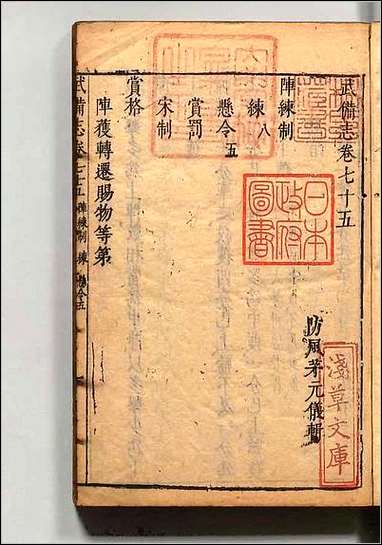 武備志卷七十五
防風茅元儀輯
陣練制
練八
懸令五
賞罰
宋制
賞格
陣獲轉遷賜物等第
武備志卷七十五 陣練制 練 懸令五
日本
政府
圖書
淺草文庫